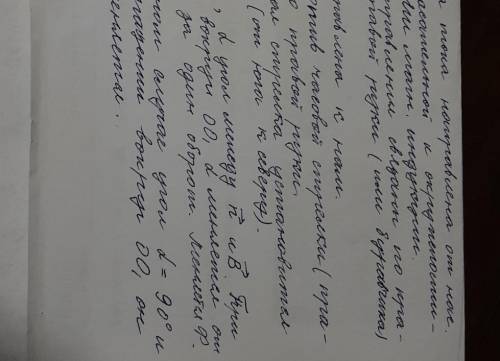 а тока направлена от нас.
касательной и окружности -
ии магн. индукции.
правлении связан по пра-
правой руки (или буравчика)
равлена к нам.
отив часовой стрелки (пра-
о правой руки.
ом стрелка установится
(от юга к северу).
, α угол между n⃗ и B⃗ При
вокруг OO, α меняется от
за один оборот. Меняя Ф.
ном случае угол α = 90° и
ращении вокруг OO, он
еняется.